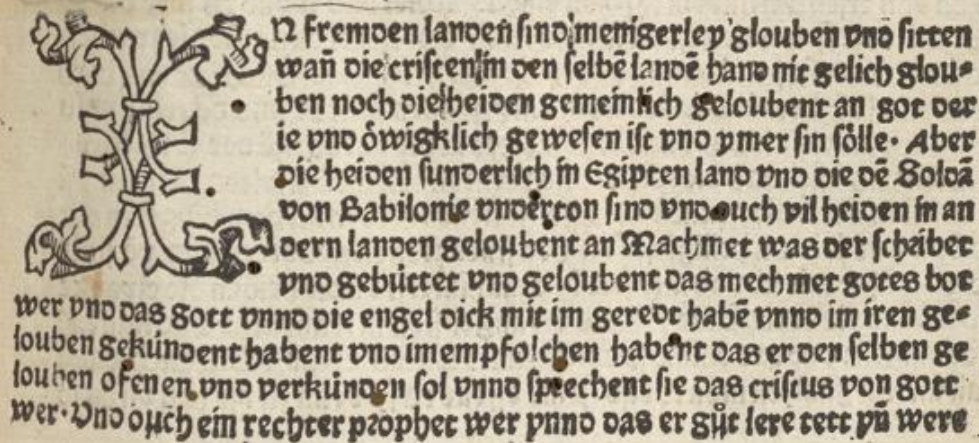 IN fremden landen sind menigerley glouben vnd sitten
wañ die cristen im den selbē landē hand nit gelich glou⸗
ben noch die heiden gemeinlich geloubent an got der
ie vnd öwigklich gewesen ist vnd ymer sin sölle. Aber
die heiden sunderlich in Egipten land vnd die dē Soldā
von Babilonie vnderton sind vnd ouch vil heiden in an
dern landen geloubent an Machmet was der schribet
vnd gebüttet vnd geloubent das mechmet gotes bot
wer vnd das gott vnnd die engel dick mit im geredt habē vnnd im iren ge⸗
louben gekündent habent vnd im empfolchen habent das er den selben ge
louben ofenen vnd verkünden sol vnnd sprechent sie das cristus von gott
wer. Vnd ouch ein rechter prophet wer vnnd das er gůt lere tett vñ were